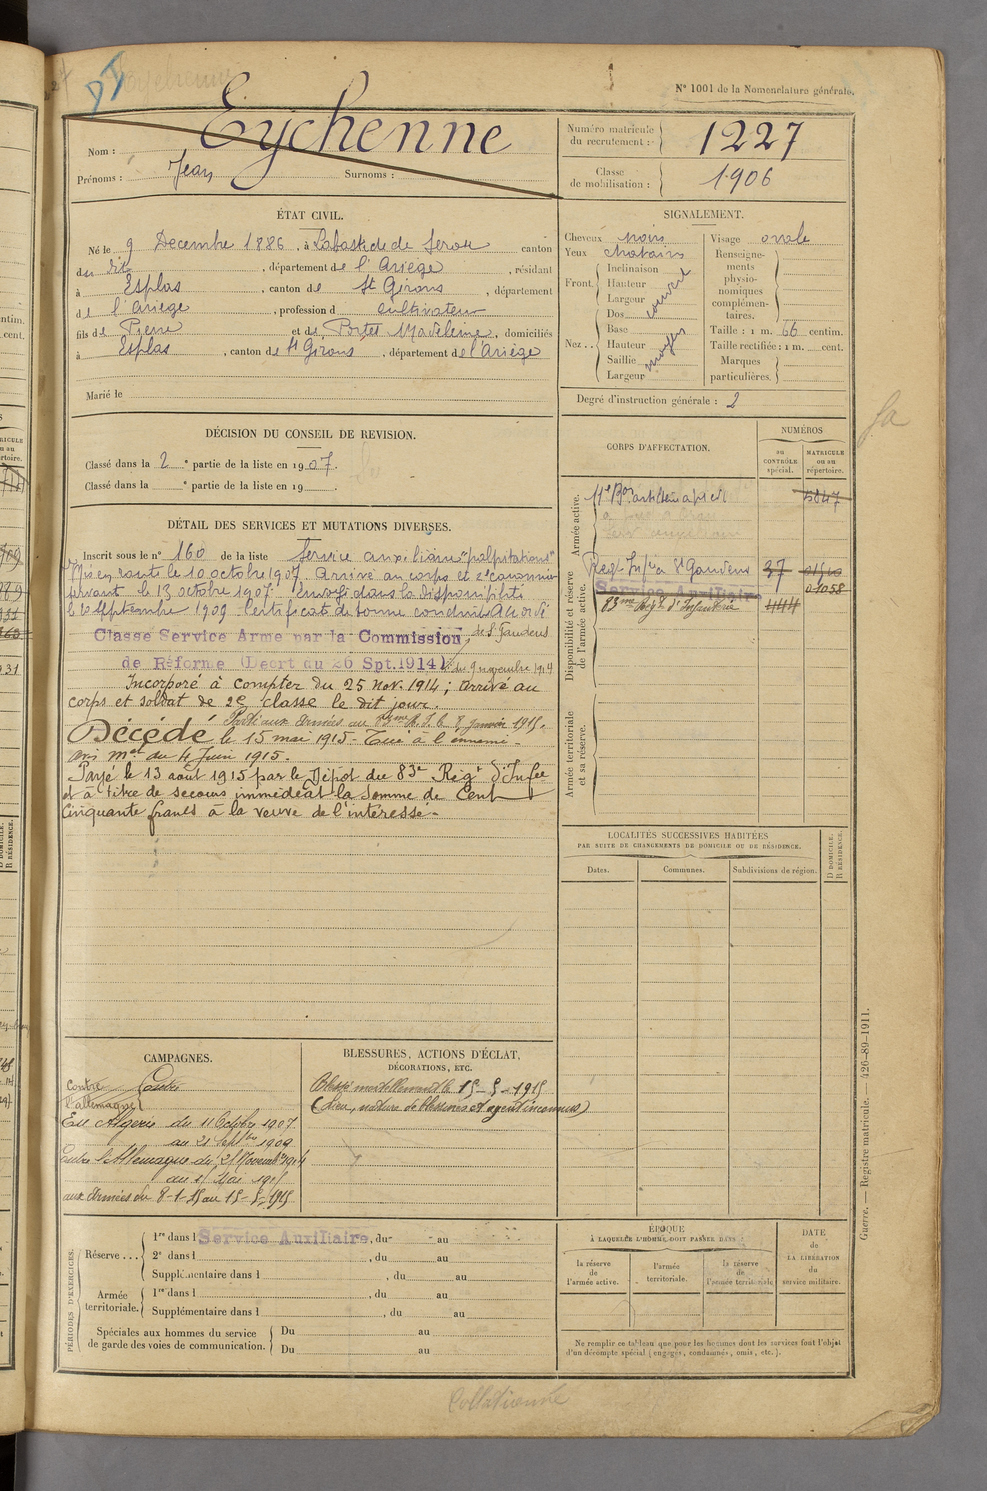 N° 1001 de la Nomenclature générale.
Nom : Eychenne
Prénoms : Jean Surnoms :
Numéro matricule du recrutement : 1227
Classe de mobilisation : 1906
ÉTAT CIVIL.
Né le 9 Decembre 1886, à Labastide de Serou canton
du dit, département de l'Ariège, résidant
à Esplas, canton de St Girons, département
de l'Ariège, profession d cultivateur
fils de Pierre et de Portet Madeleine, domiciliés
à Esplas, canton de St Girons, département de l'Ariège
Marié le
SIGNALEMENT.
Cheveux noirs
Yeux chatains
Front. Inclinaison
Hauteur
Largeur
couvert
Nez.. Dos
Base
Hauteur
Saillie
Largeur
moyen
Visage ovale
Renseignements physionomiques complémentaires.
Taille : 1 m. 66 centim.
Taille rectifiée : 1 m. cent.
Marques particulières.
Degré d'instruction générale : 2
DÉCISION DU CONSEIL DE REVISION.
Classé dans la 2e partie de la liste en 1907.
Classé dans la e partie de la liste en 19 .
CORPS D'AFFECTATION.
NUMÉROS
au CONTRÔLE spécial.
MATRICULE ou au répertoire.
Armée active.
11e Bon artillerie à pied 5847
Disponibilité et réserve de l'armée active.
Regt Infie St Gaudens 37
Service Auxiliaire 01058
83me Régt d'Infanterie 444
Armée territoriale et sa réserve.
DÉTAIL DES SERVICES ET MUTATIONS DIVERSES.
Inscrit sous le n° 160 de la liste Service auxiliaire "palpitations"
Mis en route le 10 octobre 1907. Arrivé au corps et 2e canonnier
servant le 13 octobre 1907. Envoyé dans la disponibilité
le 20 Septembre 1909. Certificat de bonne conduite Accordé
Classe Service Arme par la Commission de St Gaudens
de Réforme (Decrt du 26 Spt. 1914) du 9 novembre 1914
Incorporé à compter du 25 nov. 1914 ; arrivé au
corps et soldat de 2e classe le dit jour.
Parti aux armées au R.I. le 8 janvier 1915.
Décédé le 15 mai 1915 - Tué à l'ennemi -
avis mel du 4 Juin 1915.
Payé le 13 août 1915 par le Dépôt du 83e Régt d'Infie
et à titre de secours immédiat la somme de Cent
Cinquante francs à la veuve de l'intéressé -
LOCALITÉS SUCCESSIVES HABITÉES
PAR SUITE DE CHANGEMENTS DE DOMICILE OU DE RÉSIDENCE.
Dates.
Communes.
Subdivisions de région.
D DOMICILE.
R RÉSIDENCE.
CAMPAGNES.
contre l'allemagne
En Algérie du 11 Octobre 1907
au 21 Septbre 1909
Contre l'Allemagne du 25 Novembre 1914
au 15 Mai 1915
aux Armées du 8-1-15 au 15-5-1915
BLESSURES, ACTIONS D'ÉCLAT,
DÉCORATIONS, ETC.
Blessé mortellement le 15-5-1915
(Lieu, nature de blessures et agent inconnus)
PÉRIODES D'EXERCICES.
Réserve... 1re dans l Service Auxiliaire, du au
2e dans l , du au
Supplémentaire dans l , du au
Armée territoriale. 1re dans l , du au
Supplémentaire dans l , du au
Spéciales aux hommes du service de garde des voies de communication. Du au
Du au
ÉPOQUE
À LAQUELLE L'HOMME DOIT PASSER DANS :
la réserve de l'armée active.
l'armée territoriale.
la réserve de l'armée territoriale
DATE de LA LIBÉRATION du service militaire.
Ne remplir ce tableau que pour les hommes dont les services font l'objet
d'un décompte spécial (engagés, condamnés, omis, etc.).
Guerre. — Registre matricule. — 426-89-1911.
Collationné